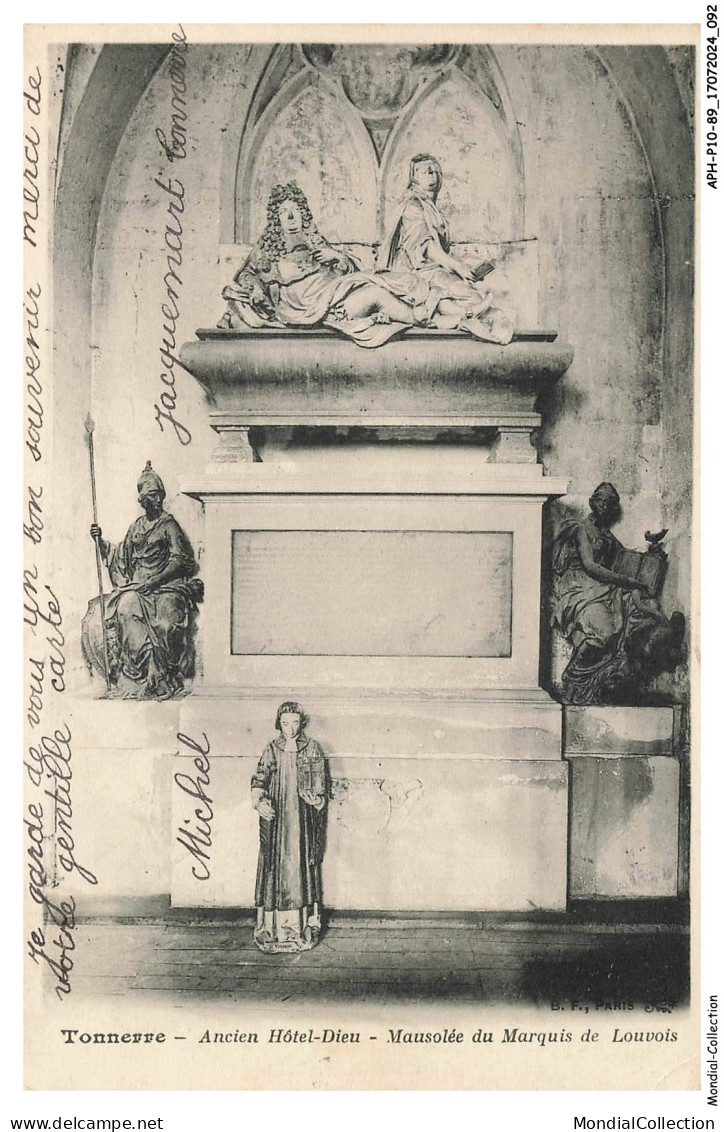 Je garde de vous Un bon souvenir merci de
votre gentille carte
Michel
Jacquemart Tonnerre
B. F., PARIS
Tonnerre – Ancien Hôtel-Dieu - Mausolée du Marquis de Louvois
APH-P10-89_17072024_092
Mondial-Collection
www.delcampe.net
MondialCollection